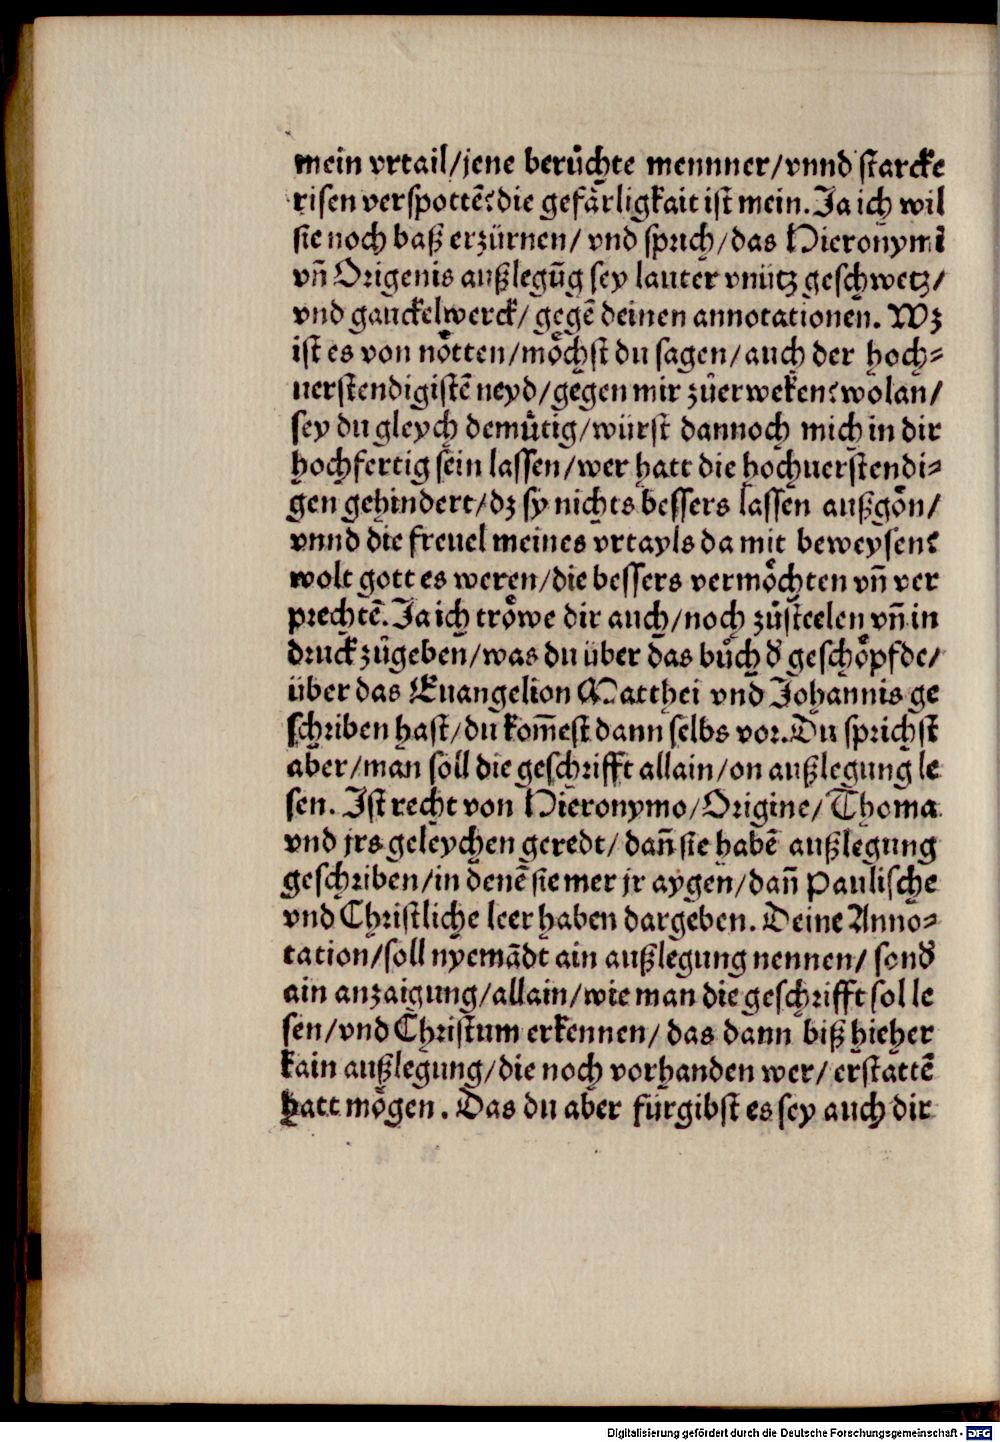 mein vrtail/jene beruͤchte mennner/vnnd starcke
risen verspottē? die gefaͤrligkait ist mein. Ja ich wil
sie noch baß erzürnen/ vnd sprich/das Hieronymi
vñ Origenis außlegūg sey lauter vnütz geschwetz/
vnd gauckelwerck/ gegē deinen annotationen. Wz
ist es von noͤtten/moͤchst du sagen/auch der hoch-
uerstendigistē neyd/gegen mir zůerweken? wolan/
sey du gleych demuͤtig/würst dannoch mich in dir
hochfertig sein lassen/wer hatt die hochuerstendi-
gen gehindert/dz sy nichts bessers lassen außgoͤn/
vnnd die freuel meines vrtayls da mit beweysen?
wolt gott es weren/die bessers vermoͤchten vñ ver
prechtē. Ja ich troͤwe dir auch/noch zůsteelen vñ in
druck zůgeben/was du über das bůch d' geschoͤpfde/
über das Euangelion Matthei vnd Johannis ge
schriben hast/du kom̄est dann selbs vor. Du sprichst
aber/man soll die geschrifft allain/on außlegung le
sen. Ist recht von Hieronymo/Origine/Thoma
vnd jrs geleychen geredt/ dañ sie habē außlegung
geschriben/in denē sie mer jr aygen/dañ Paulische
vnd Christliche leer haben dargeben. Deine Anno-
tation/soll nyemādt ain außlegung nennen/ sond'
ain anzaigung/allain/wie man die geschrifft sol le
sen/vnd Christum erkennen/ das dann biß hieher
kain außlegung/die noch vorhanden wer/ erstattē
hatt moͤgen. Das du aber fürgibst es sey auch dir
Digitalisierung gefördert durch die Deutsche Forschungsgemeinschaft - DFG